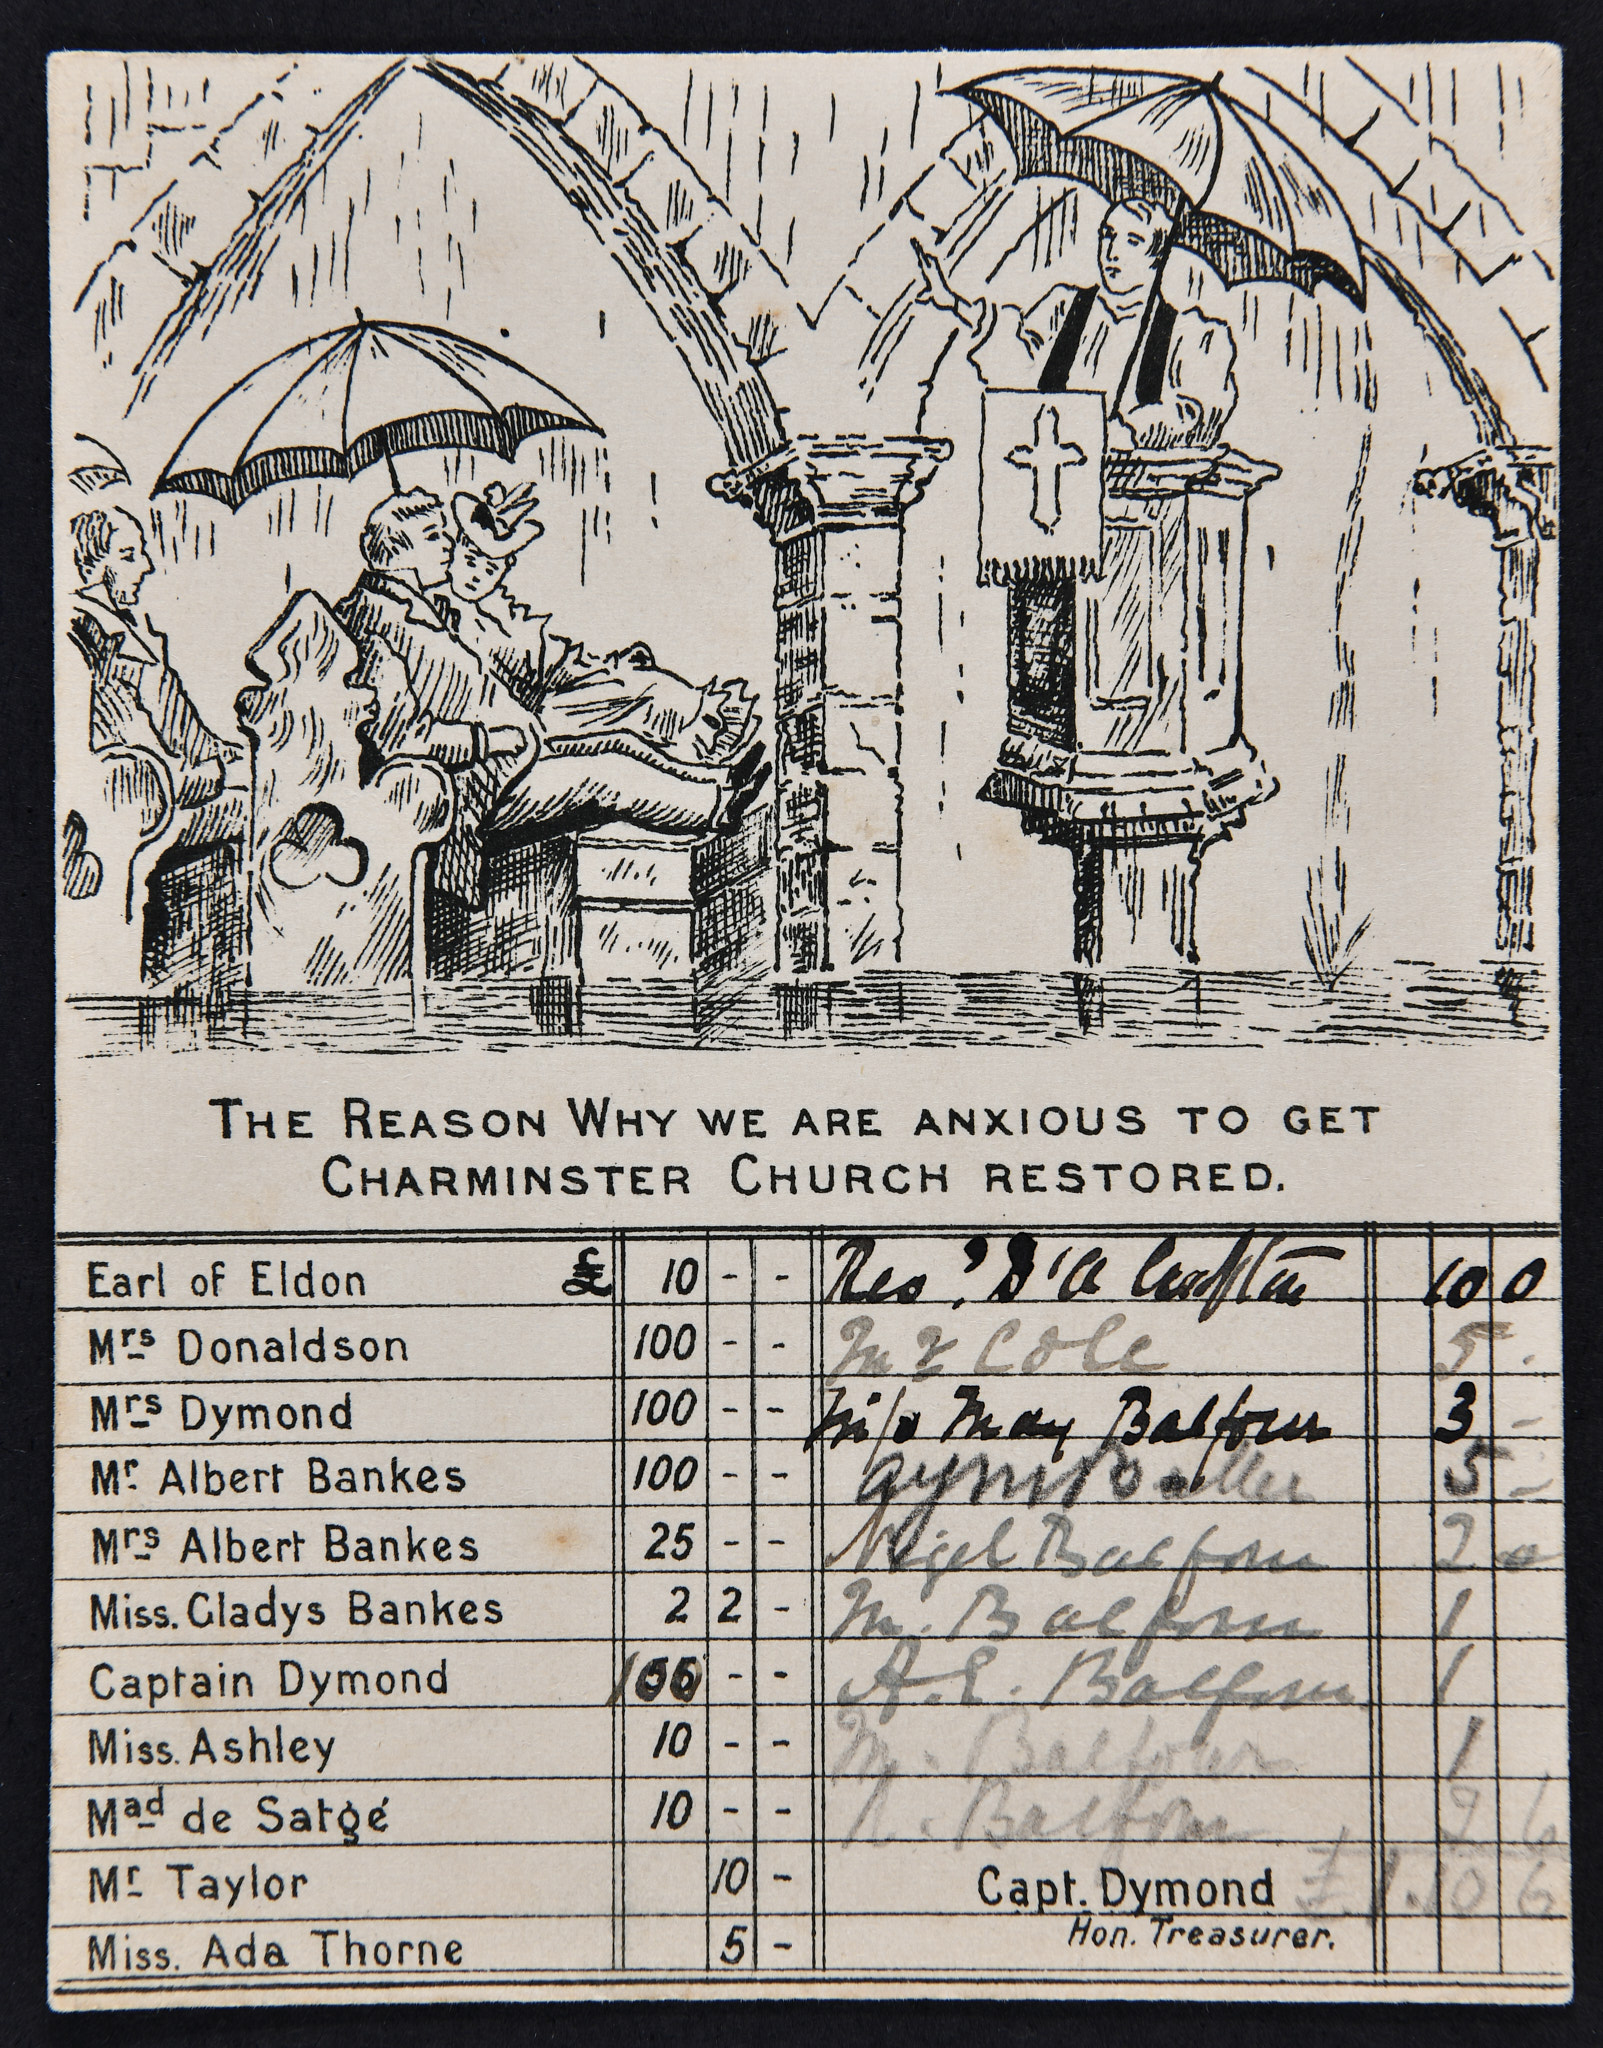 THE REASON WHY WE ARE ANXIOUS TO GET
CHARMINSTER CHURCH RESTORED.
Earl of Eldon £ 10 - -
Mrs Donaldson 100 - -
Mrs Dymond 100 - -
Mr Albert Bankes 100 - -
Mrs Albert Bankes 25 - -
Miss. Gladys Bankes 2 2 -
Captain Dymond 100 - -
Miss. Ashley 10 - -
Mad de Satgé 10 - -
Mr Taylor 10 -
Miss. Ada Thorne 5 -
10 0
Mr Cole 5 -
Miss May Balfour 3 -
5 -
Nigel Balfour 2 0
M. Balfour 1
A. E. Balfour 1
M. Balfour 1
Balfour 2 6
£1.10 6
Capt. Dymond
Hon. Treasurer.